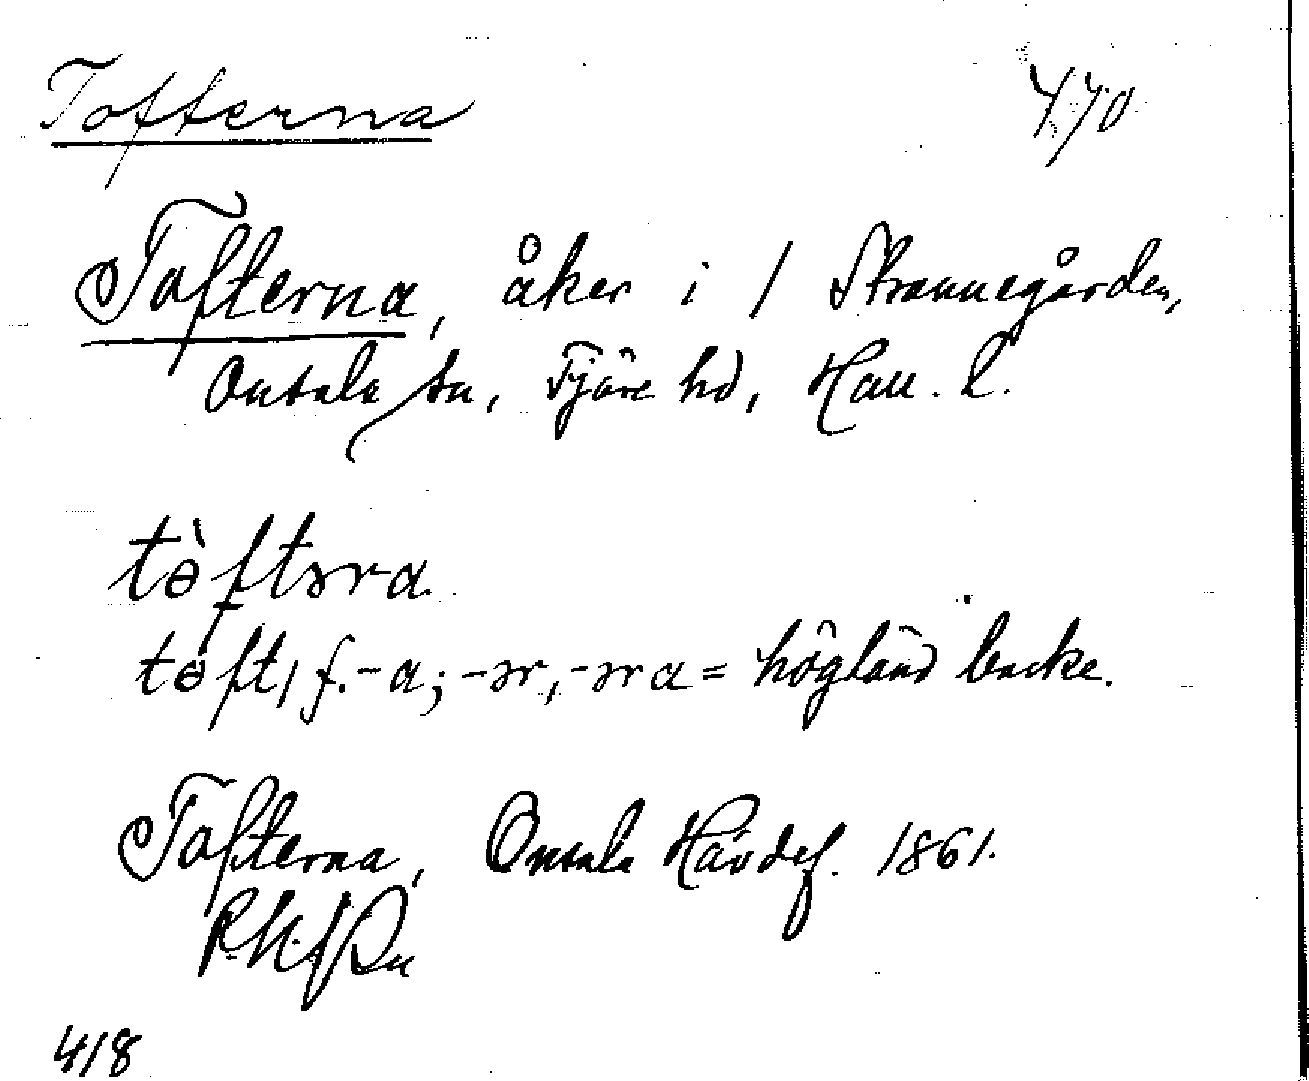 Tofterna 470
Tofterna, åker i 1 Strannegården,
Onsala sn, Fjäre hd, Hall. l.
tɵ̀ftəra.
tɵft, f. -a; -ər, -əra = högländ backe.
Tofterna, Onsala Hävdef. 1861.
418